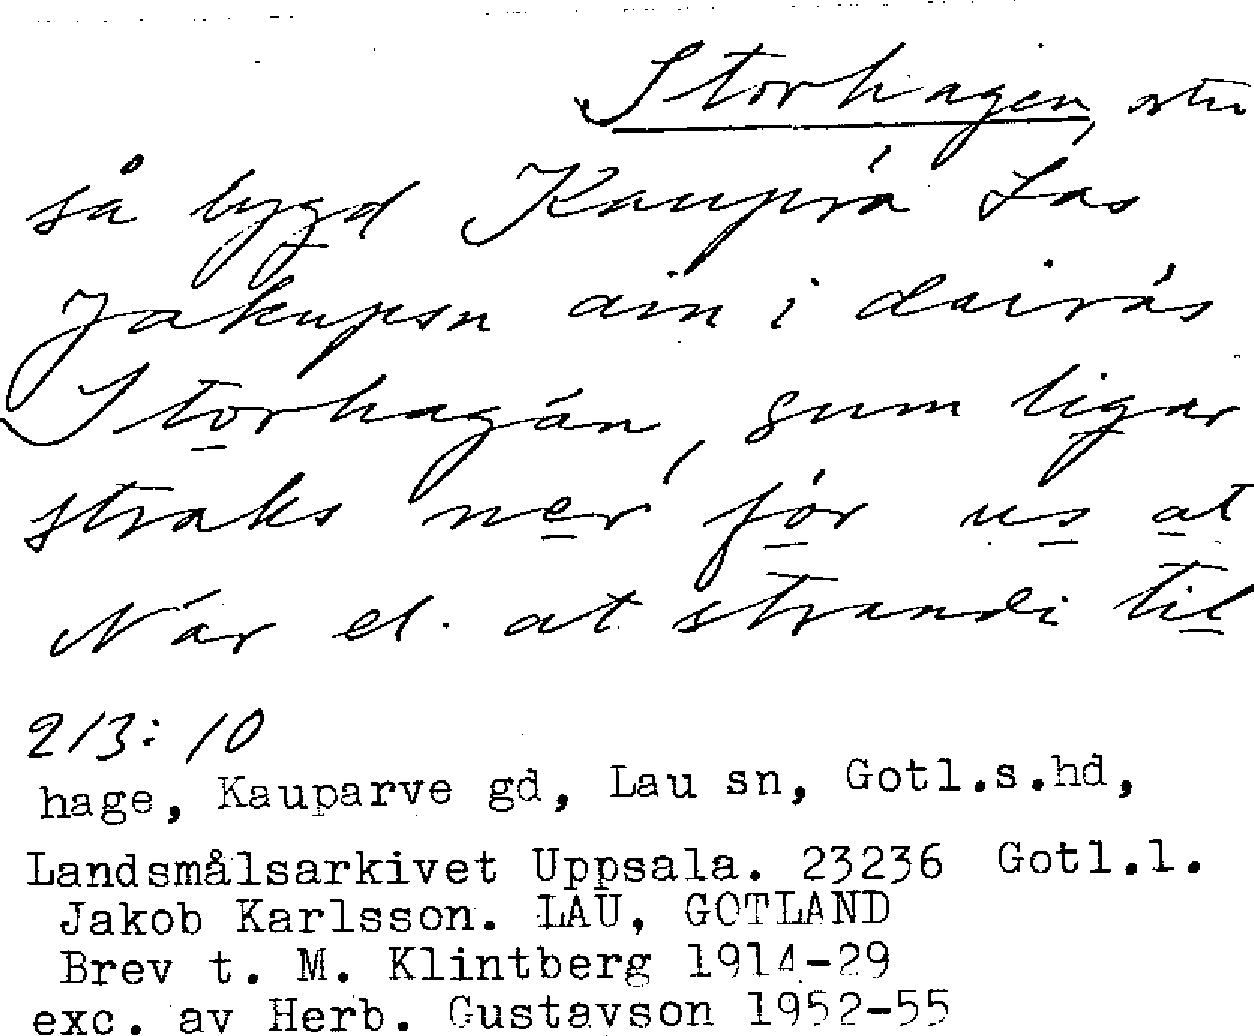 Storhagen,
så bygd Kauprá Las
Jakupsn ain i dairás
Storhagán, sum ligar
straks ner fór us at
När el. at strandi til
213:10
hage, Kauparve gd, Lau sn, Gotl.s.hd,
Landsmålsarkivet Uppsala. 23236 Gotl.l.
Jakob Karlsson. LAU, GOTLAND
Brev t. M. Klintberg 1914-29
exc. av Herb. Gustavson 1952-55